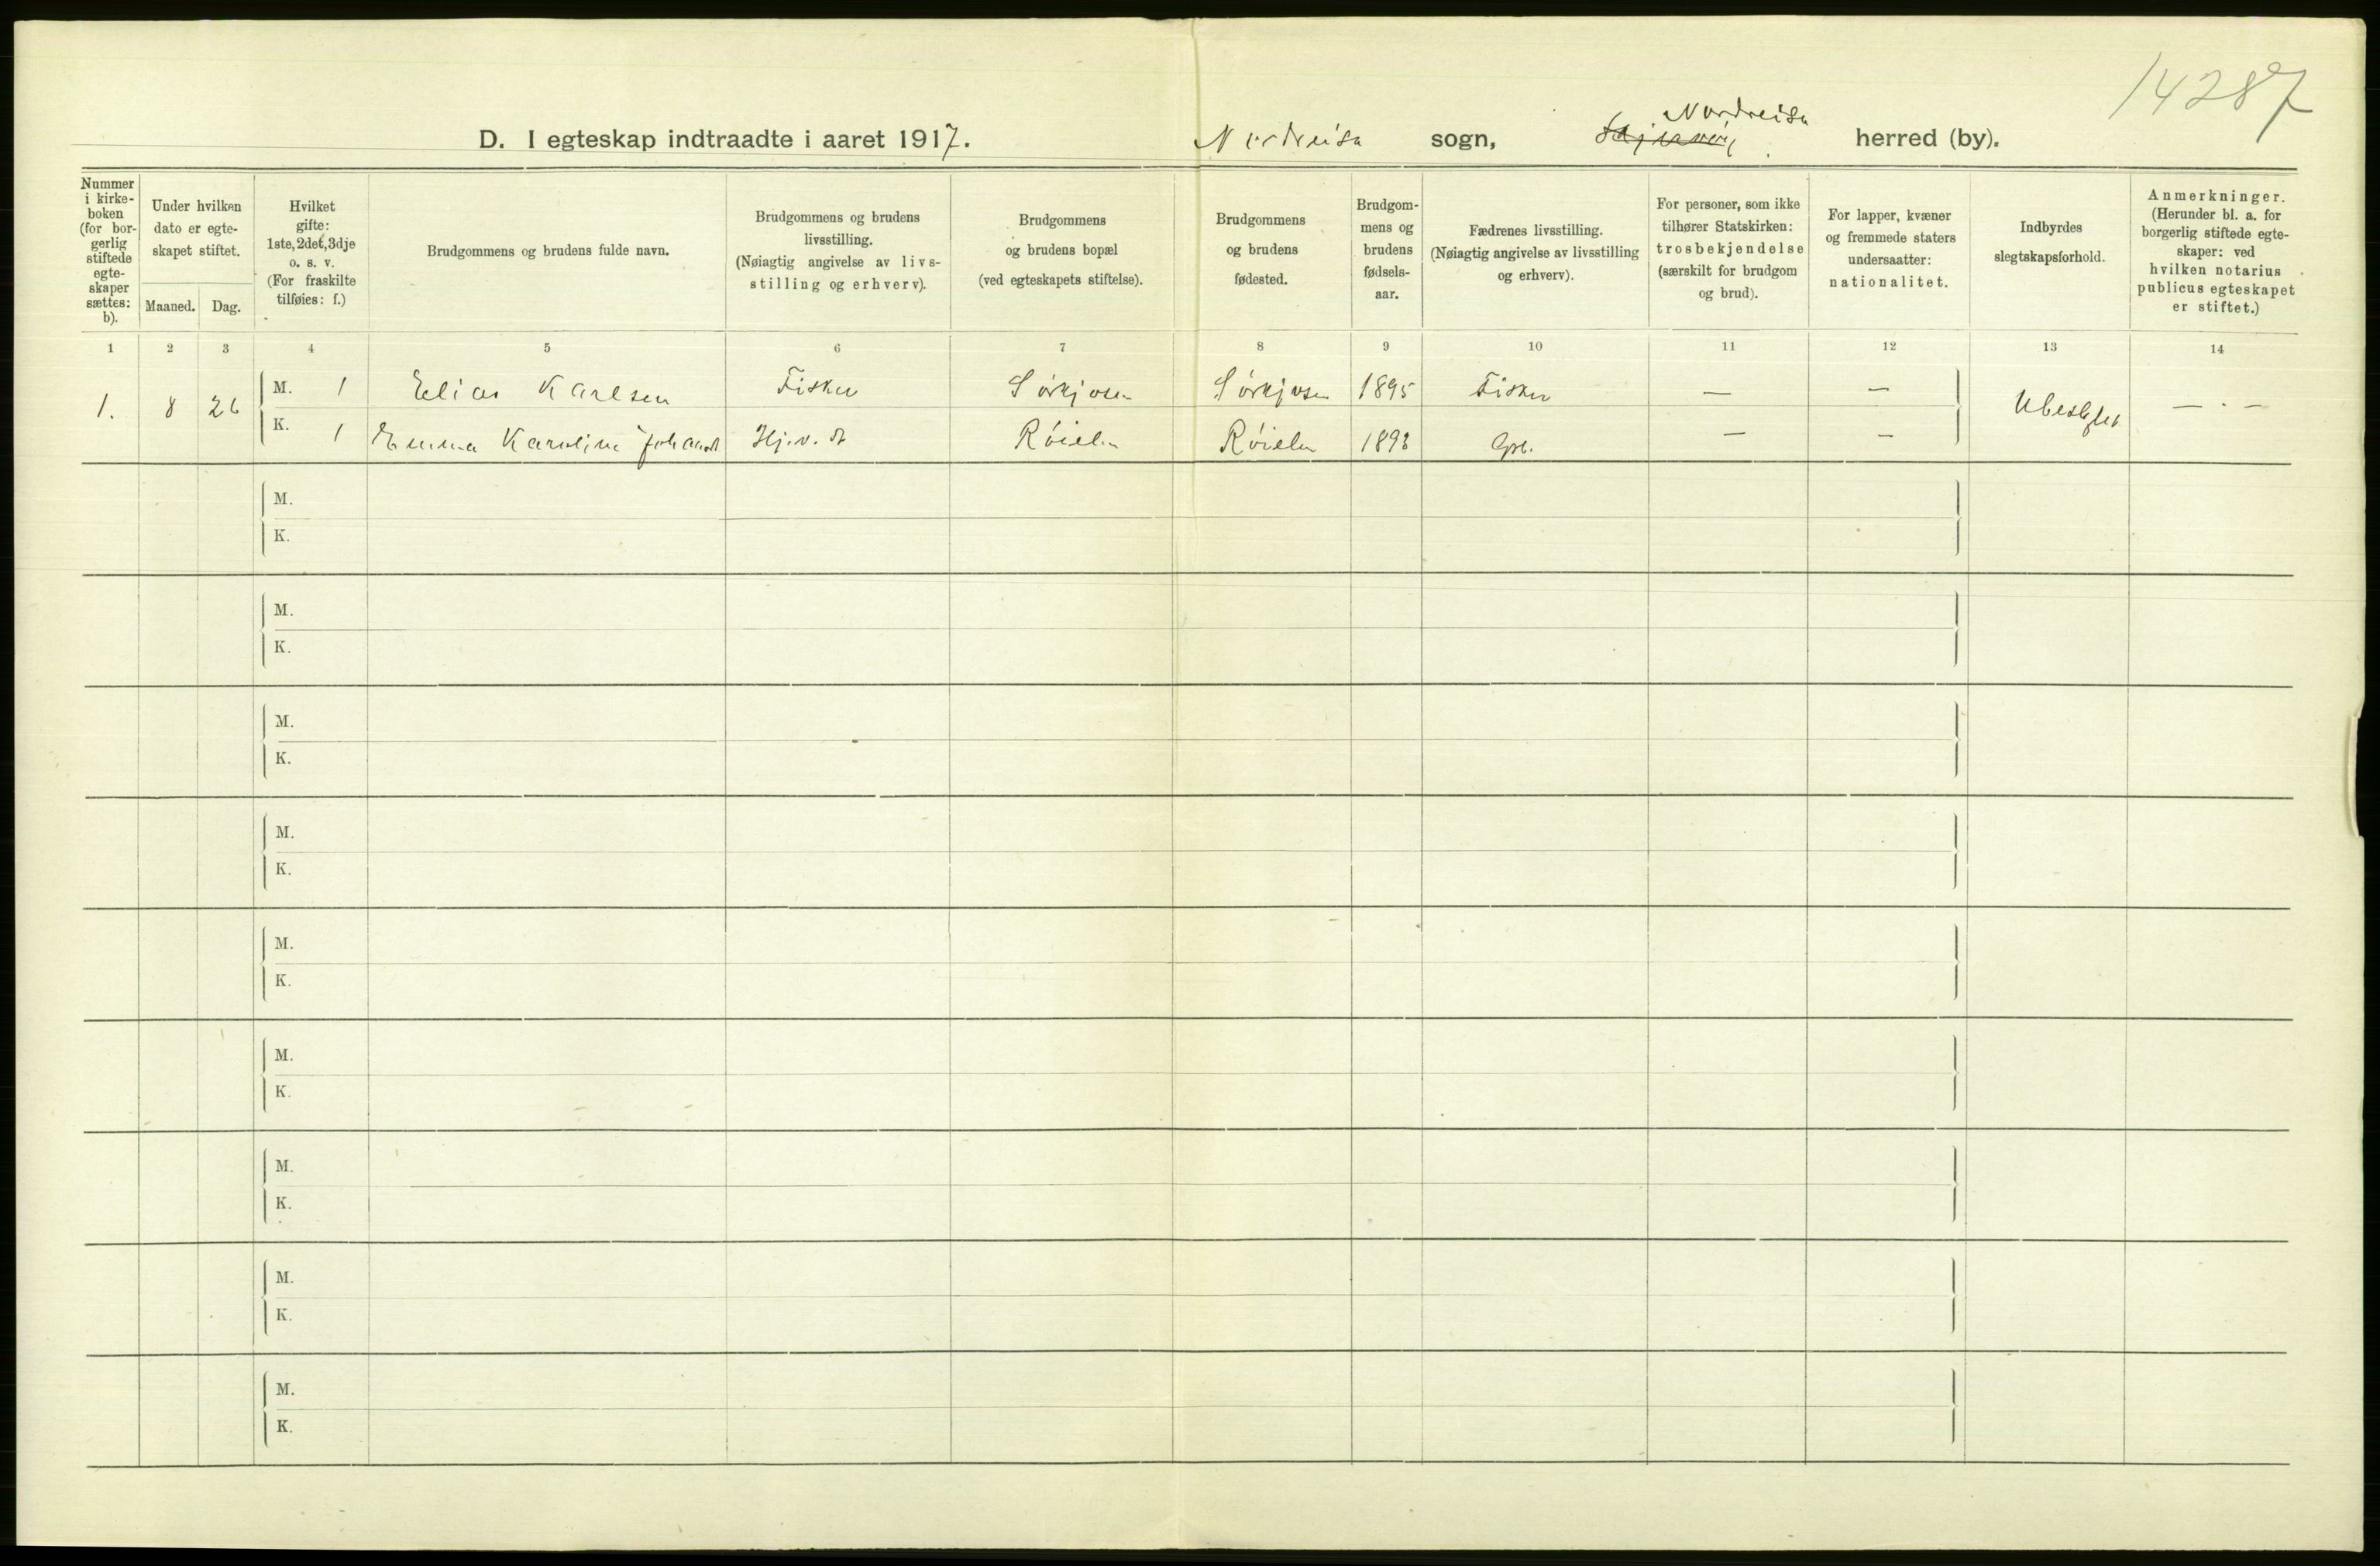 14287
D. I egteskap indtraadte i aaret 1917. Nordreisa sogn, Nordreisa herred (by).
Nummer i kirke-boken (for bor-gerlig stiftede egte-skaper sættes: b).
Under hvilken dato er egte-skapet stiftet.
Maaned. Dag.
Hvilket gifte: 1ste, 2det, 3dje o. s. v. (For fraskilte tilføies: f.)
Brudgommens og brudens fulde navn.
Brudgommens og brudens livsstilling. (Nøiagtig angivelse av livs-stilling og erhverv).
Brudgommens og brudens bopæl (ved egteskapets stiftelse).
Brudgommens og brudens fødested.
Brudgom-mens og brudens fødsels-aar.
Fædrenes livsstilling. (Nøiagtig angivelse av livsstilling og erhverv).
For personer, som ikke tilhører Statskirken: trosbekjendelse (særskilt for brudgom og brud).
For lapper, kvæner og fremmede staters undersaatter: nationalitet.
Indbyrdes slegtskapsforhold.
Anmerkninger. (Herunder bl. a. for borgerlig stiftede egte-skaper: ved hvilken notarius publicus egteskapet er stiftet.)
1 2 3 4 5 6 7 8 9 10 11 12 13 14
1. 8 26 M. 1 Elias Karlsen Fisker Sørkjosen Sørkjosen 1895 Fisker — — Ubeslegtet — · —
K. 1 Emma Karoline Hj.v. dt Røielen Røielen 1893 Gbr. — —
M.
K.
M.
K.
M.
K.
M.
K.
M.
K.
M.
K.
M.
K.
M.
K.
M.
K.